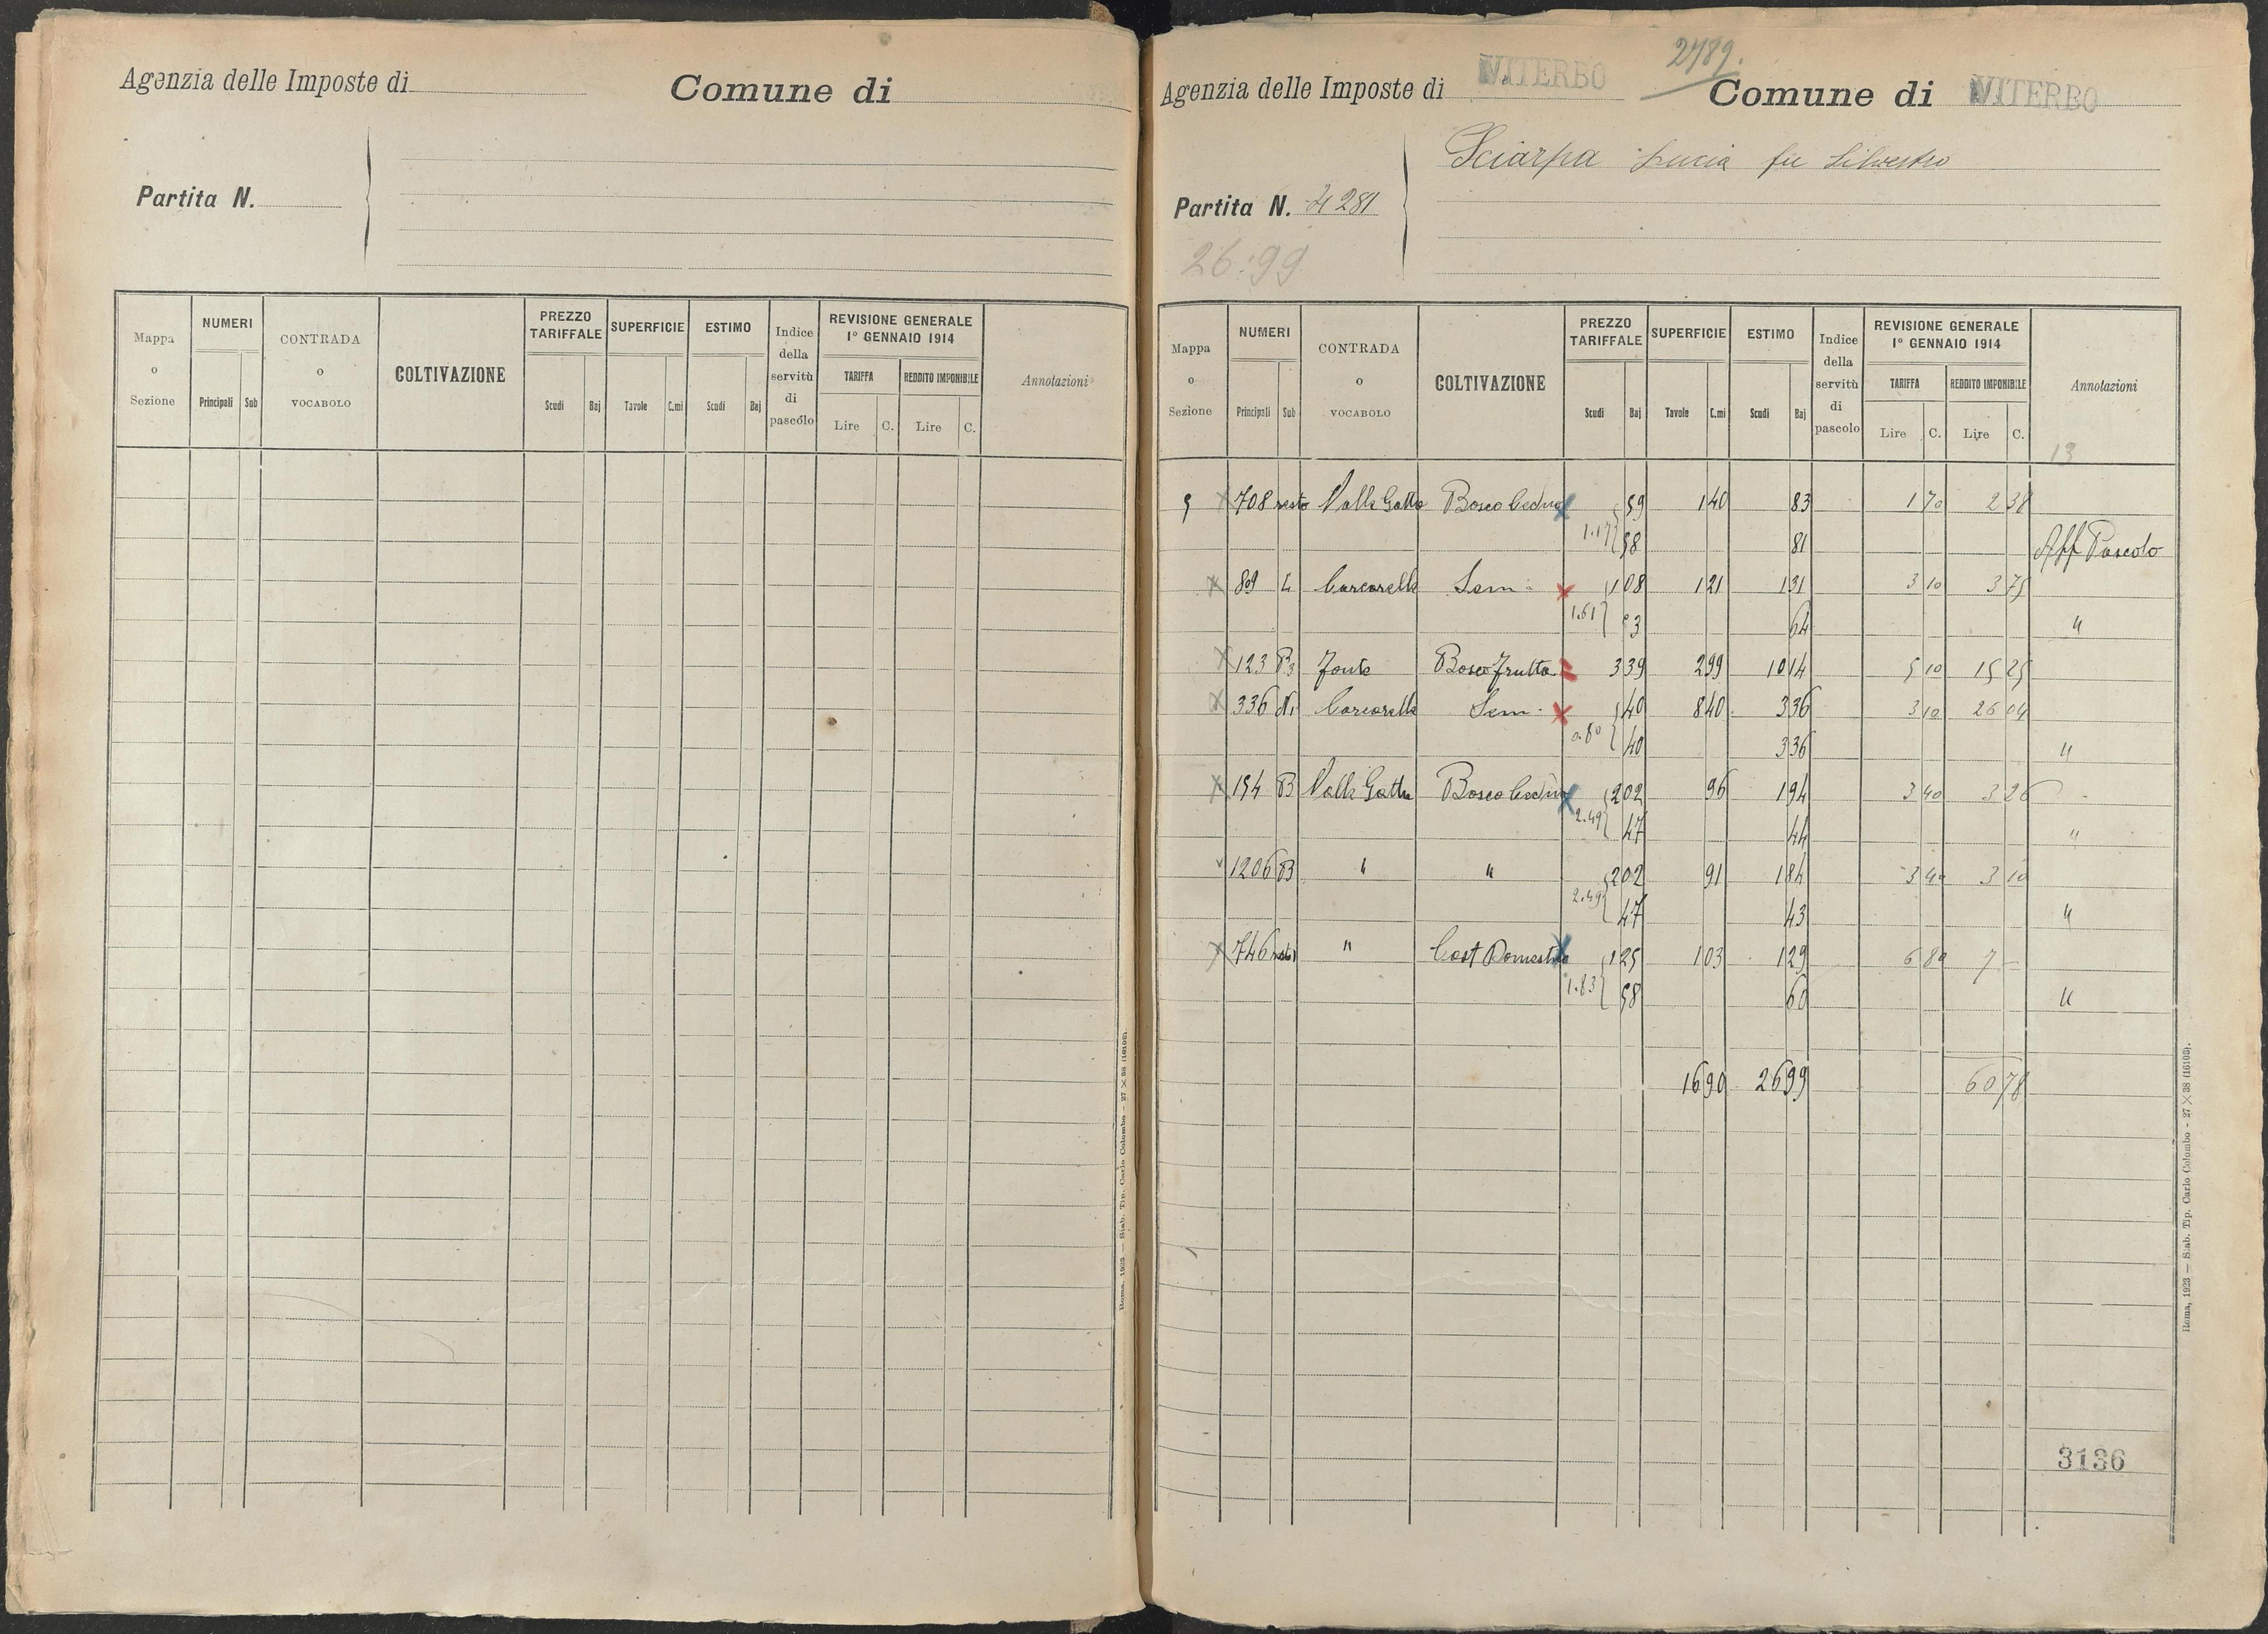 Agenzia delle Imposte di
Comune di
Partita N.
Mappa o Sezione
NUMERI
Principali Sub
CONTRADA o VOCABOLO
COLTIVAZIONE
PREZZO TARIFFALE
Scudi Baj
SUPERFICIE
Tavole C.mi
ESTIMO
Scudi Baj
Indice della servitù di pascolo
REVISIONE GENERALE
1° GENNAIO 1914
TARIFFA REDDITO IMPONIBILE
Lire C. Lire C.
Annotazioni
Roma, 1923 — Stab. Tip. Carlo Colombo - 27 × 38 (16103).
2489.
Agenzia delle Imposte di VITERBO
Comune di VITERBO
Sciarpa Lucia fu Silvestro
Partita N. 4281
26:99
Mappa o Sezione
NUMERI
Principali Sub
CONTRADA o VOCABOLO
COLTIVAZIONE
PREZZO TARIFFALE
Scudi Baj
SUPERFICIE
Tavole C.mi
ESTIMO
Scudi Baj
Indice della servitù di pascolo
REVISIONE GENERALE
1° GENNAIO 1914
TARIFFA REDDITO IMPONIBILE
Lire C. Lire C.
Annotazioni
13
5 708 resto Valle Gatta Bosco Ceduo 59 1 40 83 1 70 2 38
1.17 58 81 Aff Pascolo
89 L Carcarelle Sem 1 08 1 21 1 31 3 10 3 75
1.61 53 64 "
123 B3 Fonte Bosco frutto 3 39 2 99 10 14 5 10 15 25
336 N1 Carcarelle Sem 40 8 40 3 36 3 10 26 04
0.80 40 3 36 "
154 B Valle Gatta Bosco Ceduo 2 02 96 1 94 3 40 3 26
2.49 47 44 "
1206 B " " 2 02 91 1 84 3 40 3 10
2.49 47 43 "
746 resto " Cast Domestico 1 25 1 03 1 29 6 80 7 —
1.83 58 60 "
16 90 26 99 60 78
3136
Roma, 1923 — Stab. Tip. Carlo Colombo - 27 × 38 (16103).